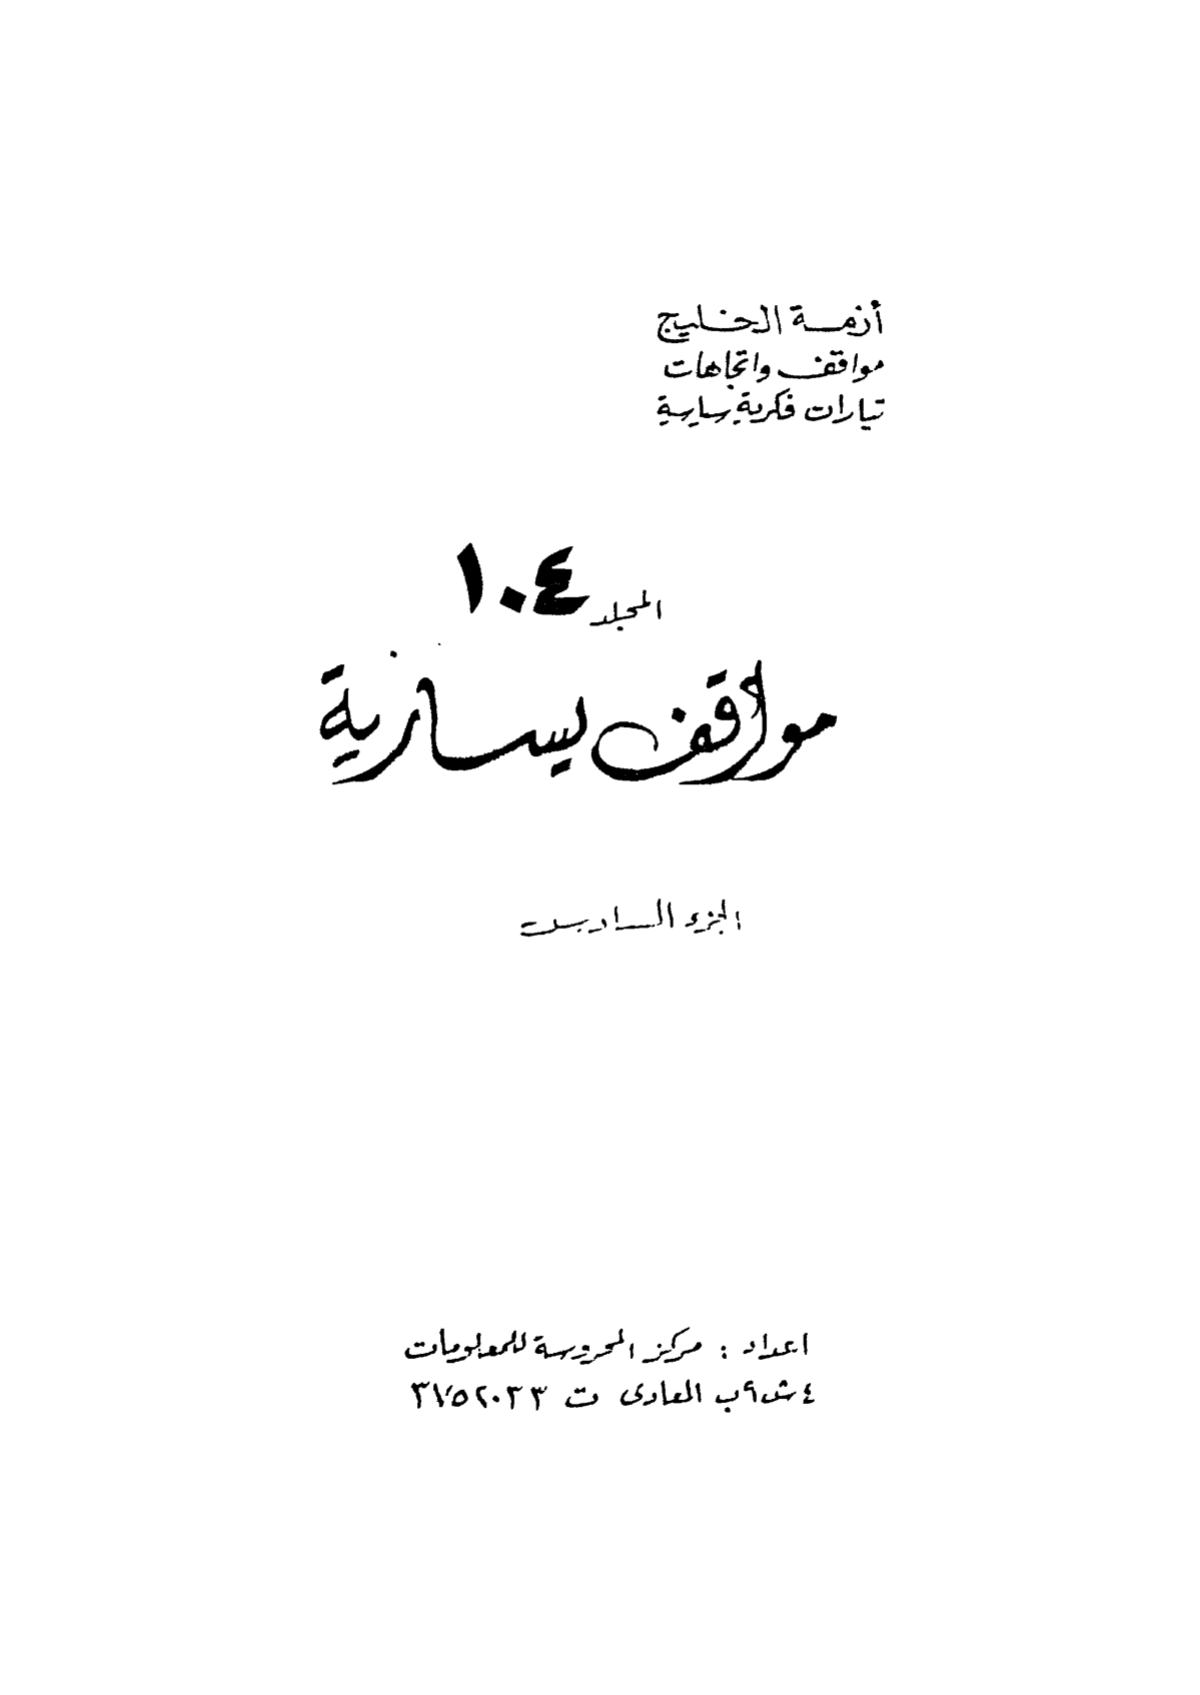 أزمة الخليج
مواقف واتجاهات
تيارات فكرية سياسية
المجلد ١٠٤
مواقف يسارية
الجزء السادس
اعداد : مركز المحروسة للمعلومات
٤ ش ٩ب المعادى ت ٣٧٥٢٠٣٣